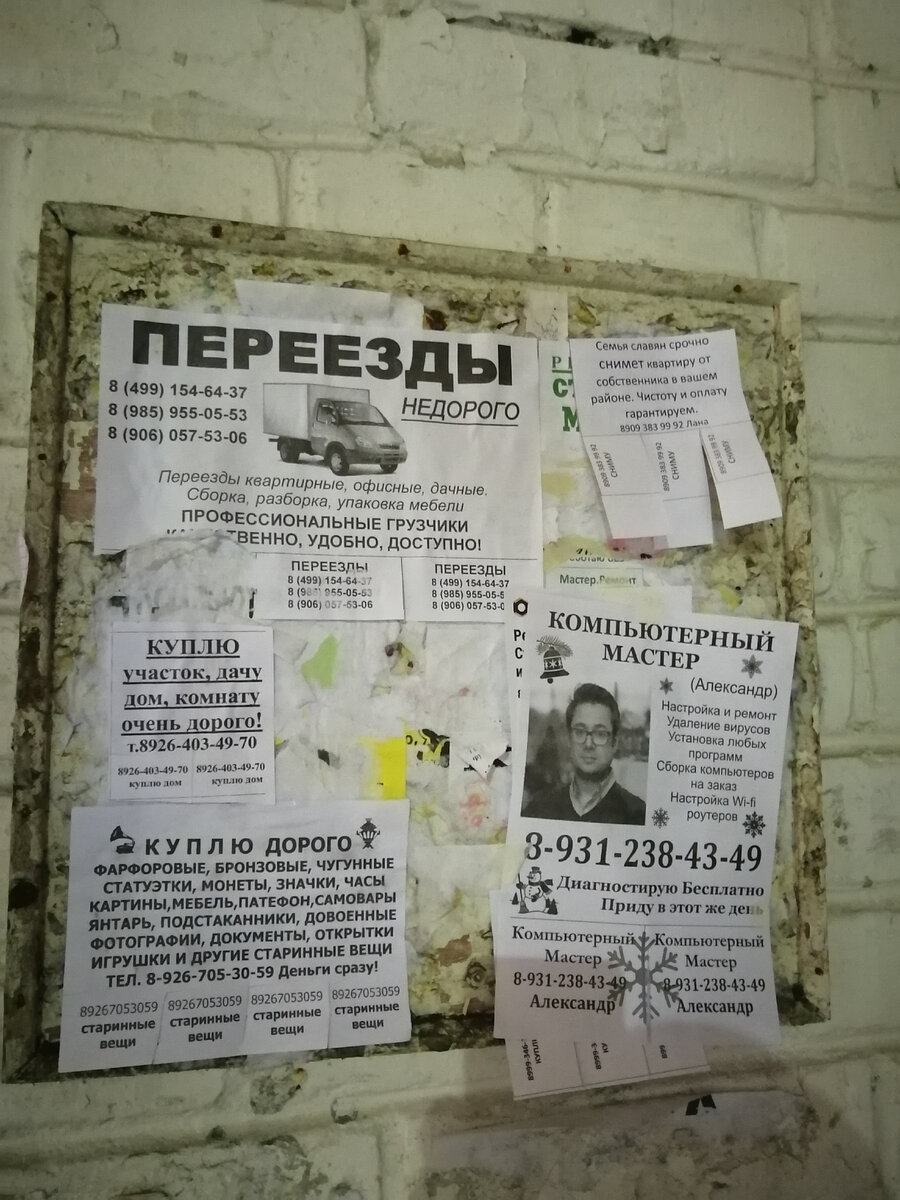 ПЕРЕЕЗДЫ
8 (499) 154-64-37
8 (985) 955-05-53
8 (906) 057-53-06
НЕДОРОГО
Переезды квартирные, офисные, дачные.
Сборка, разборка, упаковка мебели
ПРОФЕССИОНАЛЬНЫЕ ГРУЗЧИКИ
УДОБНО, ДОСТУПНО!
ПЕРЕЕЗДЫ
8 (499) 154-64-37
8 (985) 955-05-53
8 (906) 057-53-06
ПЕРЕЕЗДЫ
8 (499) 154-64-
8 (985) 955-05-5
8 (906) 057-53-0
Семья славян срочно
СНИМЕТ квартиру от
собственника в вашем
районе. Чистоту и оплату
гарантируем.
8909 383 99 92 Лана
8909 383 99 92
СНИМУ
8909 383 99 92
СНИМУ
8909 383 99 92
СНИМУ
Мастер.Ремонт
КУПЛЮ
участок, дачу
дом, комнату
очень дорого!
т.8926-403-49-70
8926-403-49-70
куплю дом
8926-403-49-70
куплю дом
КУПЛЮ ДОРОГО
ФАРФОРОВЫЕ, БРОНЗОВЫЕ, ЧУГУННЫЕ
СТАТУЭТКИ, МОНЕТЫ, ЗНАЧКИ, ЧАСЫ
КАРТИНЫ,МЕБЕЛЬ,ПАТЕФОН,САМОВАРЫ
ЯНТАРЬ, ПОДСТАКАННИКИ, ДОВОЕННЫЕ
ФОТОГРАФИИ, ДОКУМЕНТЫ, ОТКРЫТКИ
ИГРУШКИ И ДРУГИЕ СТАРИННЫЕ ВЕЩИ
ТЕЛ. 8-926-705-30-59 Деньги сразу!
89267053059
старинные
вещи
89267053059
старинные
вещи
89267053059
старинные
вещи
89267053059
старинные
вещи
КОМПЬЮТЕРНЫЙ
МАСТЕР
(Александр)
Настройка и ремонт
Удаление вирусов
Установка любых
программ
Сборка компьютеров
на заказ
Настройка Wi-fi
роутеров
8-931-238-43-49
Диагностирую Бесплатно
Приду в этот же день
Компьютерный
Мастер
8-931-238-43-49
Александр
Компьютерный
Мастер
8-931-238-43-49
Александр